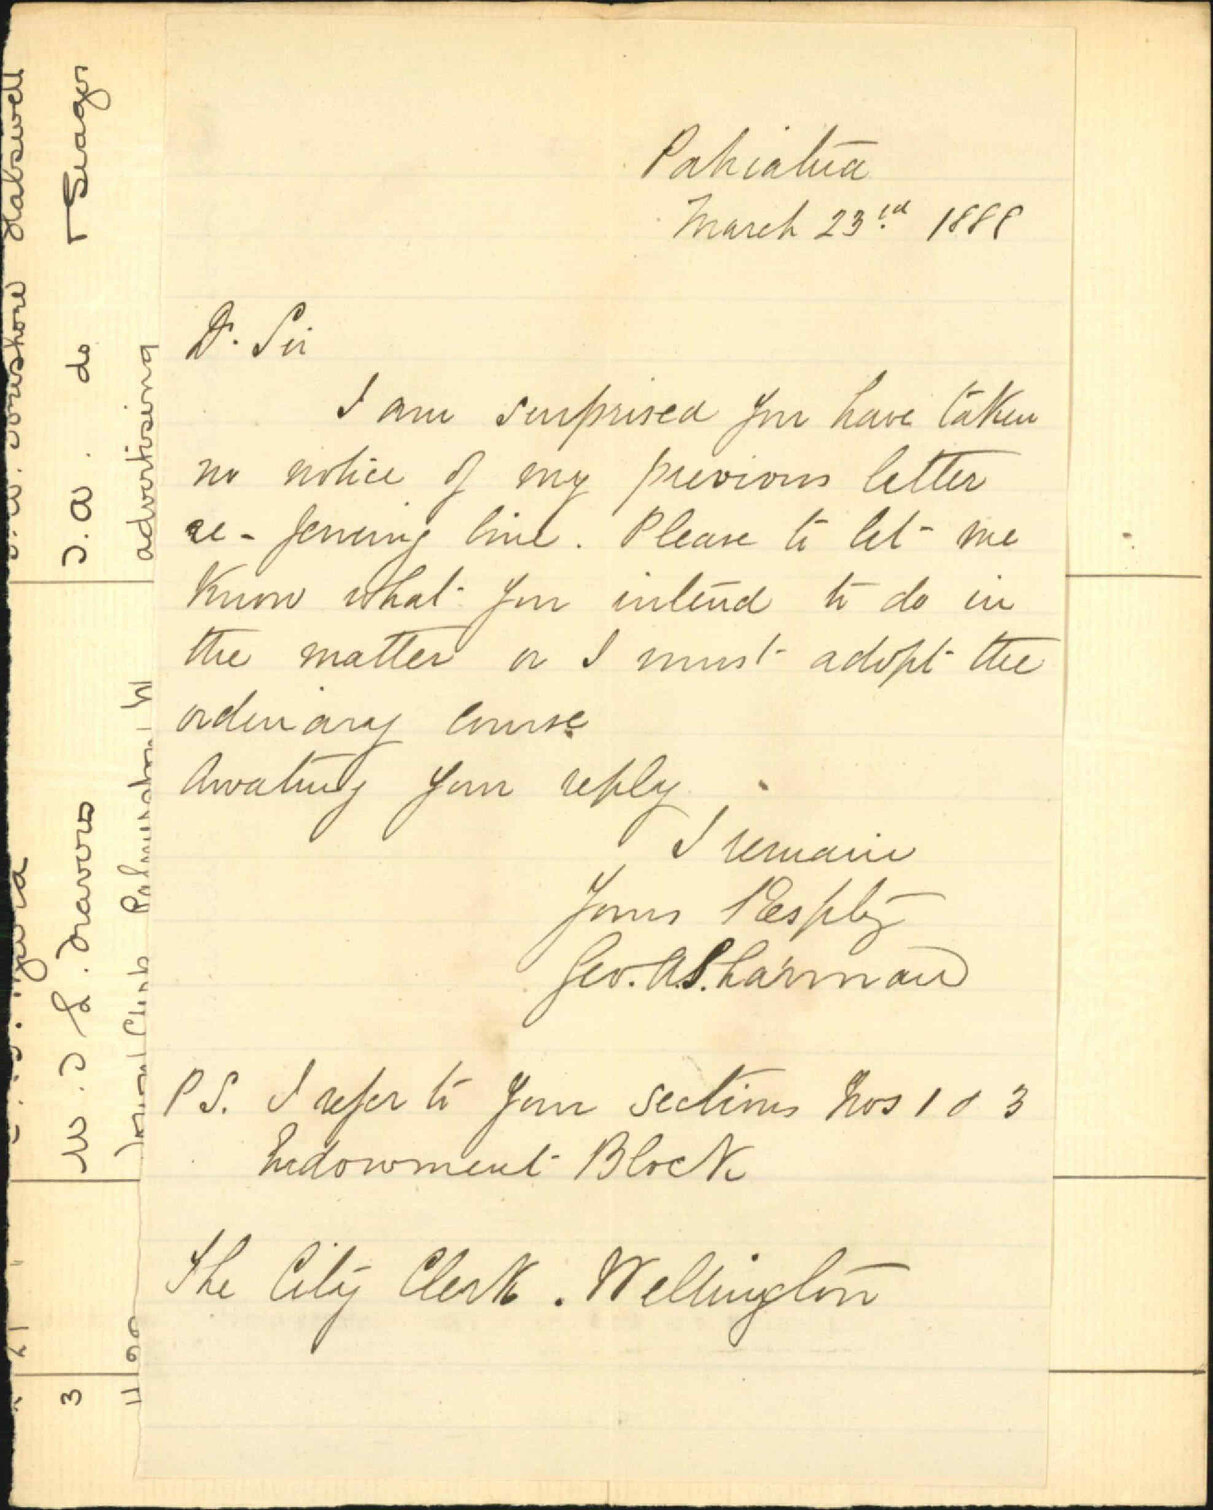 Pahiatua
March 23rd 1888
Dr. Sir
I am surprised you have taken
no notice of my previous letter
re-fencing line. Please to let me
know what you intend to do in
the matter or I must adopt the
ordinary course
Awating your reply.
I remain
Yours REsply
Geo. A. Sharman
P S. I refer to your sections Nos 1 & 3
Endowment Block
The City Clerk. Wellington
Seager
J. A. do
advertising
W. T L. Travers
3